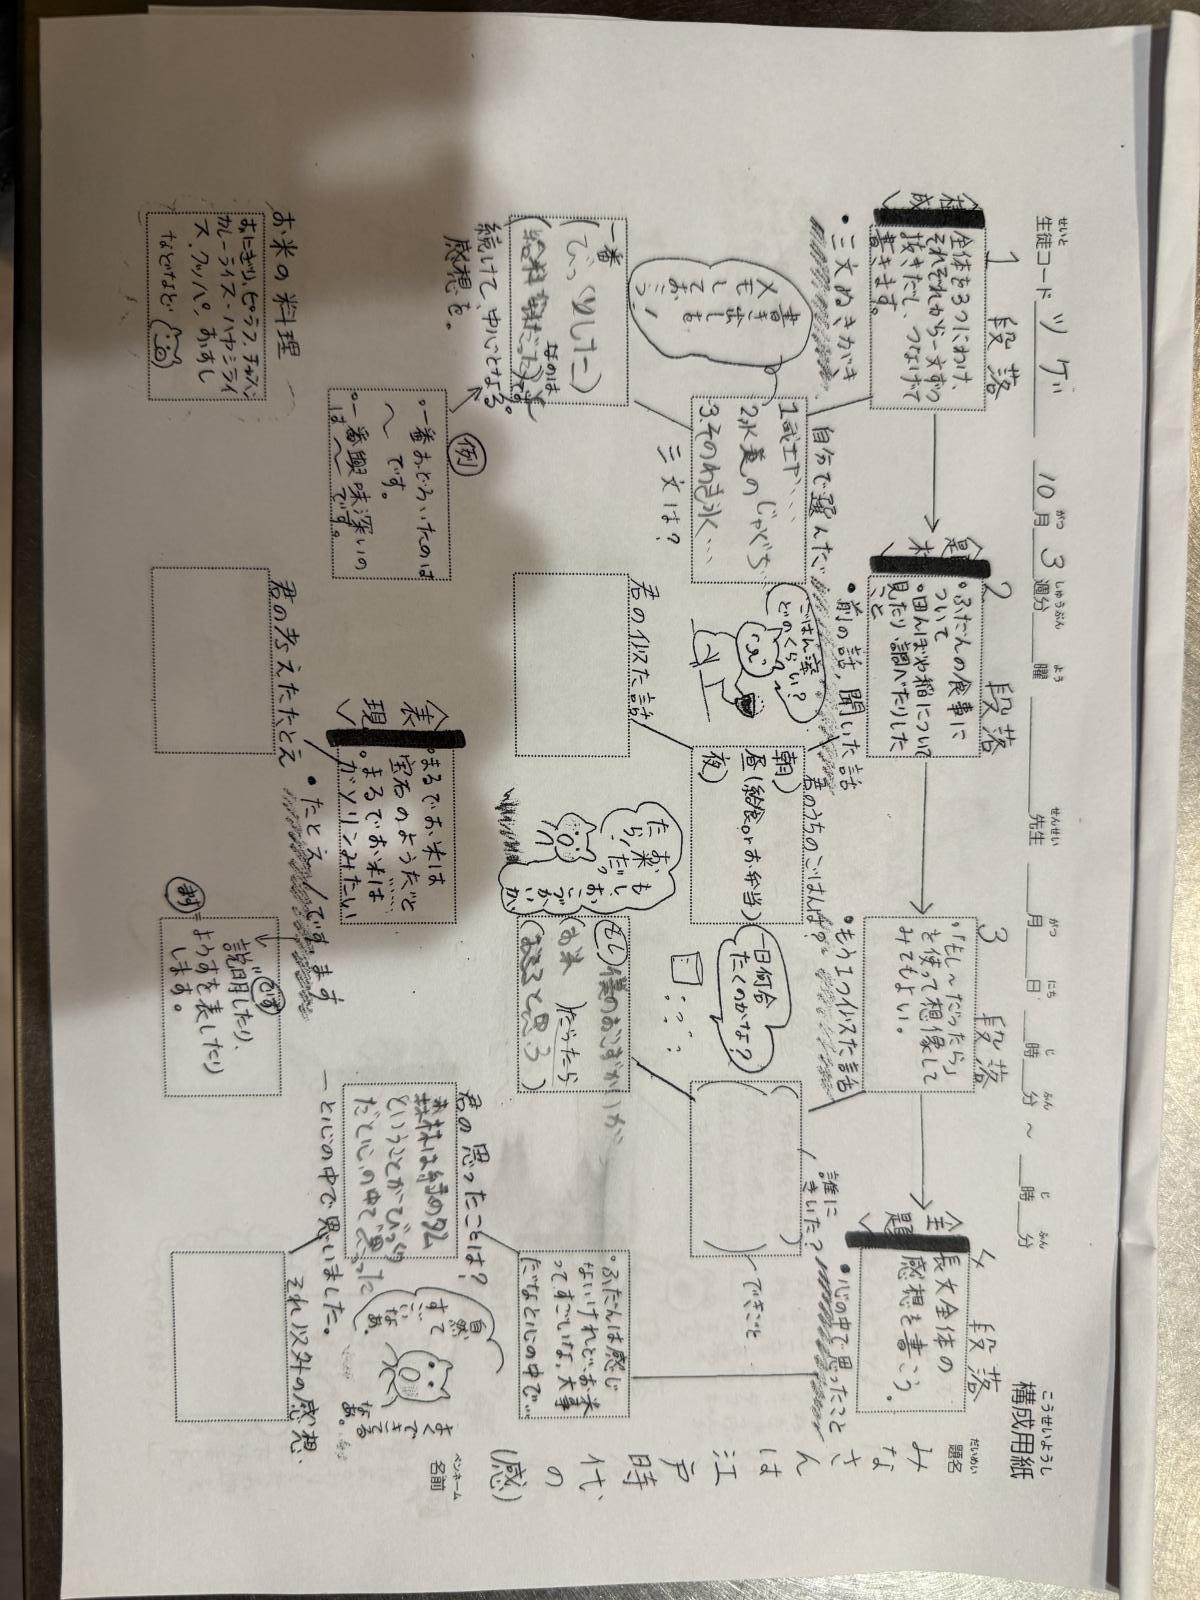 構成用紙
こうせいようし
生徒コード ツゲ 10月3週分 曜 先生 月 日 時 分 ~ 時 分
せいと がつ しゅうぶん よう せんせい がつ にち じ ふん じ ふん
題名
だいめい
みなさんは江戸時代の(感)
ペンネーム
名前
1段落
<構成>
全体を3つにわけ、
それぞれから一文ずつ
抜きだし、つなげて
書きます。
・三文ぬきがき
書き出しも
メモして
おこう!
自分で選んだ
1武士や…
2水道のじゃぐち
3そのわき水…
三文は?
一番
(びっくりした)
なのは
続けて、中心となる
感想を。
例
・一番おどろいたのは
~です。
・一番興味深いの
は~です。
お米の料理
おにぎり、ピラフ、チャーハン
カレーライス・ハヤシライ
ス、クッパ、おすし
などなど
2段落
<題材>
・ふだんの食事に
ついて
・田んぼや稲について
見たり、調べたりした
こと
・前の話,聞いた話
君のうちのごはんは?
ごはん派?
どのくらい?
朝)
昼(給食orお弁当)
夜)
君の似た話
<表現>
・まるでお米は
宝石のようだと
・まるでお米は……
ガソリンみたい
・たとえ
君の考えたたとえ
3段落
・「もし~だったら」
を使って想像して
みてもよい。
・もう1つ似た話
一日何合
たくのかな?
誰に
きいた?
~できごと…
もし、
おこづかいが
お米だっ
たら!
もし 僕のおこづかいが
お米 )だったら
( と思う)
です、ます
説明したり、
ようすを表したり
します。
4段落
<主題>
長文全体の
感想を書こう。
・心の中で思ったこと
・ふだんは感じ
ないけれど、お米
ってすごいな、大事
だなと心の中で…
君の思ったことは?
森林は緑のダム
ということがびっくり
だと心の中で思った
自然
って
すご
いなあ。
よく
できてる
なあ。
ーと心の中で思いました。
それ以外の感想